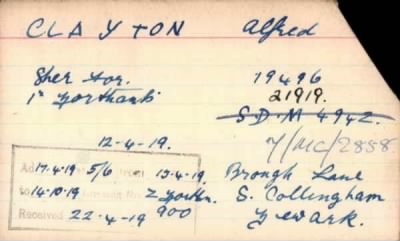 CLAYTON Alfred
Sher For. 19496
1st Northants 21919.
S.D.M 4942.
12-4-19. 7/MC/2858
17-4-19 5/6 from 13-4-19 Brough Lane
to 14-10-19 2 S. Collingham
Received 22-4-19 900 Newark.